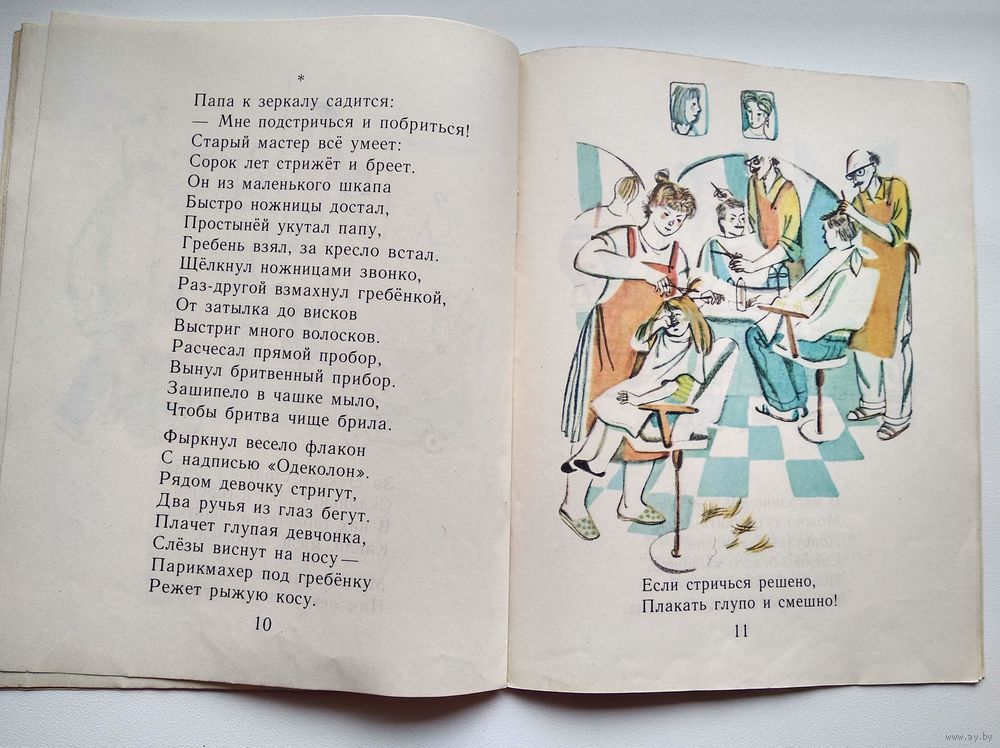 *
Папа к зеркалу садится:
— Мне подстричься и побриться!
Старый мастер всё умеет:
Сорок лет стрижёт и бреет.
Он из маленького шкапа
Быстро ножницы достал,
Простынёй укутал папу,
Гребень взял, за кресло встал.
Щёлкнул ножницами звонко,
Раз-другой взмахнул гребёнкой,
От затылка до висков
Выстриг много волосков.
Расчесал прямой пробор,
Вынул бритвенный прибор.
Зашипело в чашке мыло,
Чтобы бритва чище брила.
Фыркнул весело флакон
С надписью «Одеколон».
Рядом девочку стригут,
Два ручья из глаз бегут.
Плачет глупая девчонка,
Слёзы виснут на носу —
Парикмахер под гребёнку
Режет рыжую косу.
10
Если стричься решено,
Плакать глупо и смешно!
11
www.ay.by